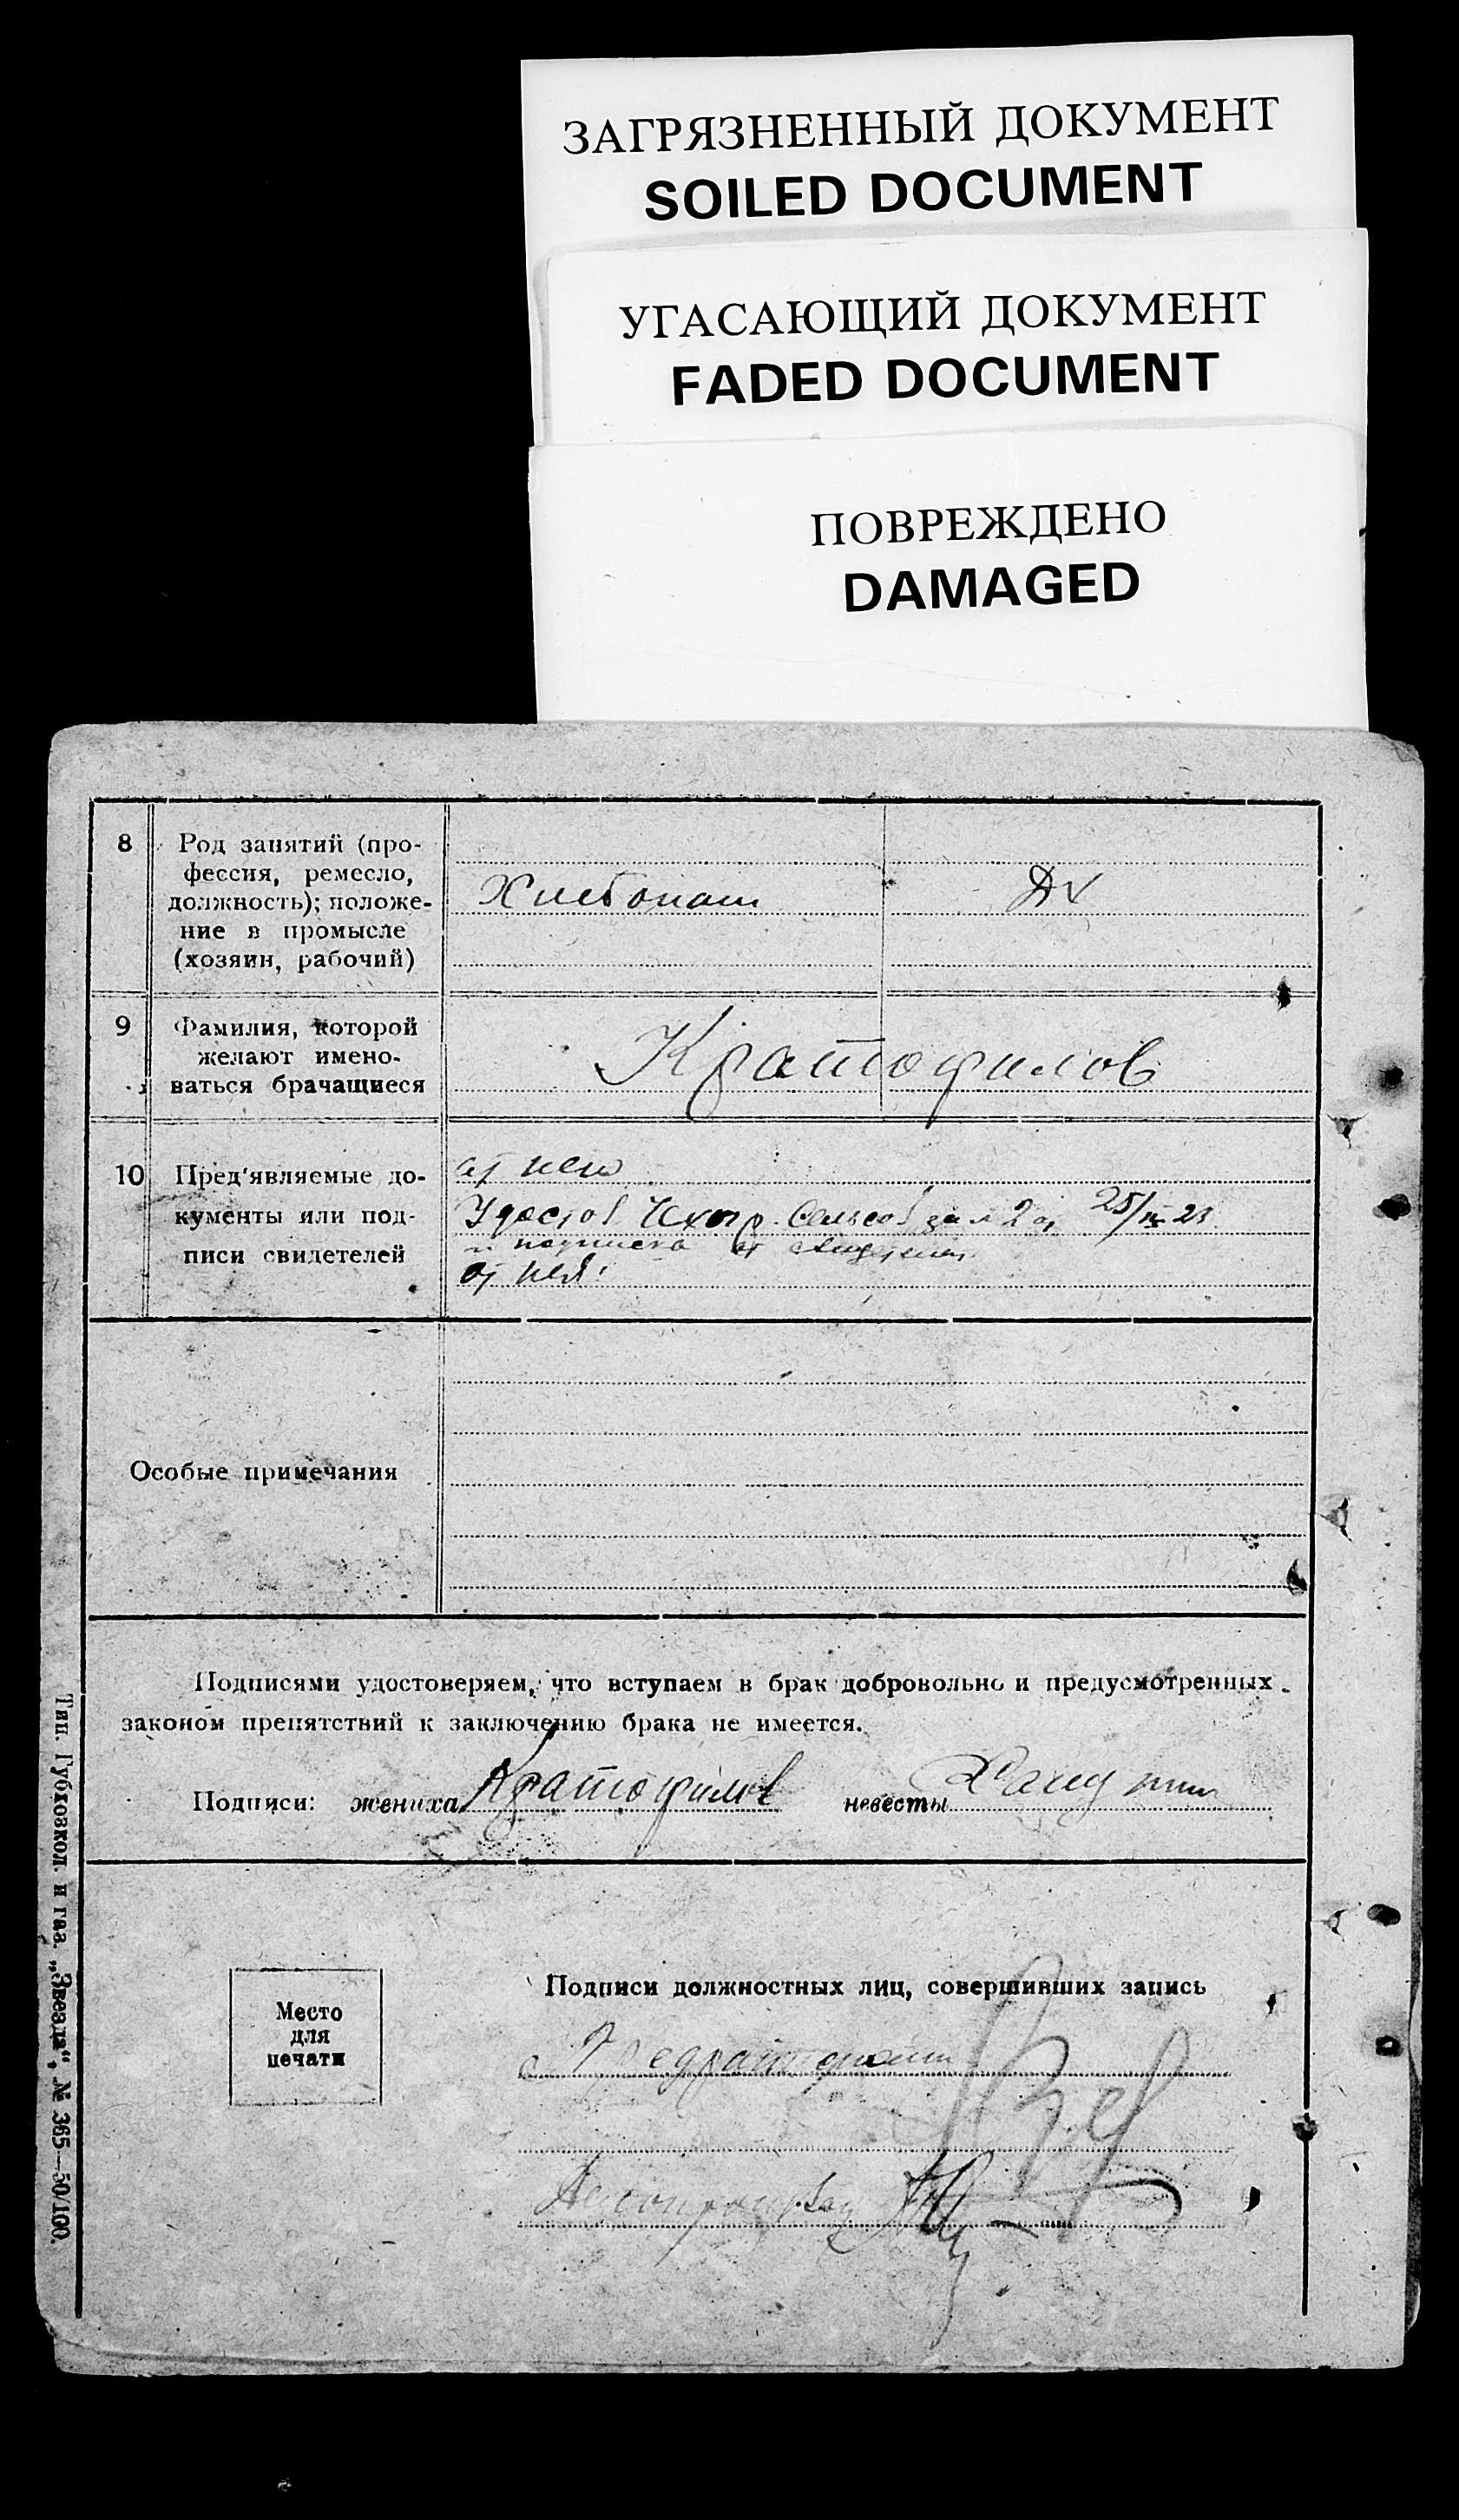 ЗАГРЯЗНЕННЫЙ ДОКУМЕНТ
SOILED DOCUMENT
УГАСАЮЩИЙ ДОКУМЕНТ
FADED DOCUMENT
ПОВРЕЖДЕНО
DAMAGED
8
Род занятий (про-
фессия, ремесло,
должность); положе-
ние в промысле
(хозяин, рабочий)
Хлебопаш
ДХ
9
Фамилия, которой
желают имено-
ваться брачащиеся
Кратофилов
10
Пред'являемые до-
кументы или под-
писи свидетелей
от него
Удостов Сельсов за № 2 от 25/IX 23
и подписка
от нея
Особые примечания
Подписями удостоверяем, что вступаем в брак добровольно и предусмотренных
законом препятствий к заключению брака не имеется.
Подписи: жениха Кратофилов невесты
Место
для
печати
Подписи должностных лиц, совершивших запись
Делопроизвод
Тип. Губковкоп и газ. „Звезда“, № 365—50/100.